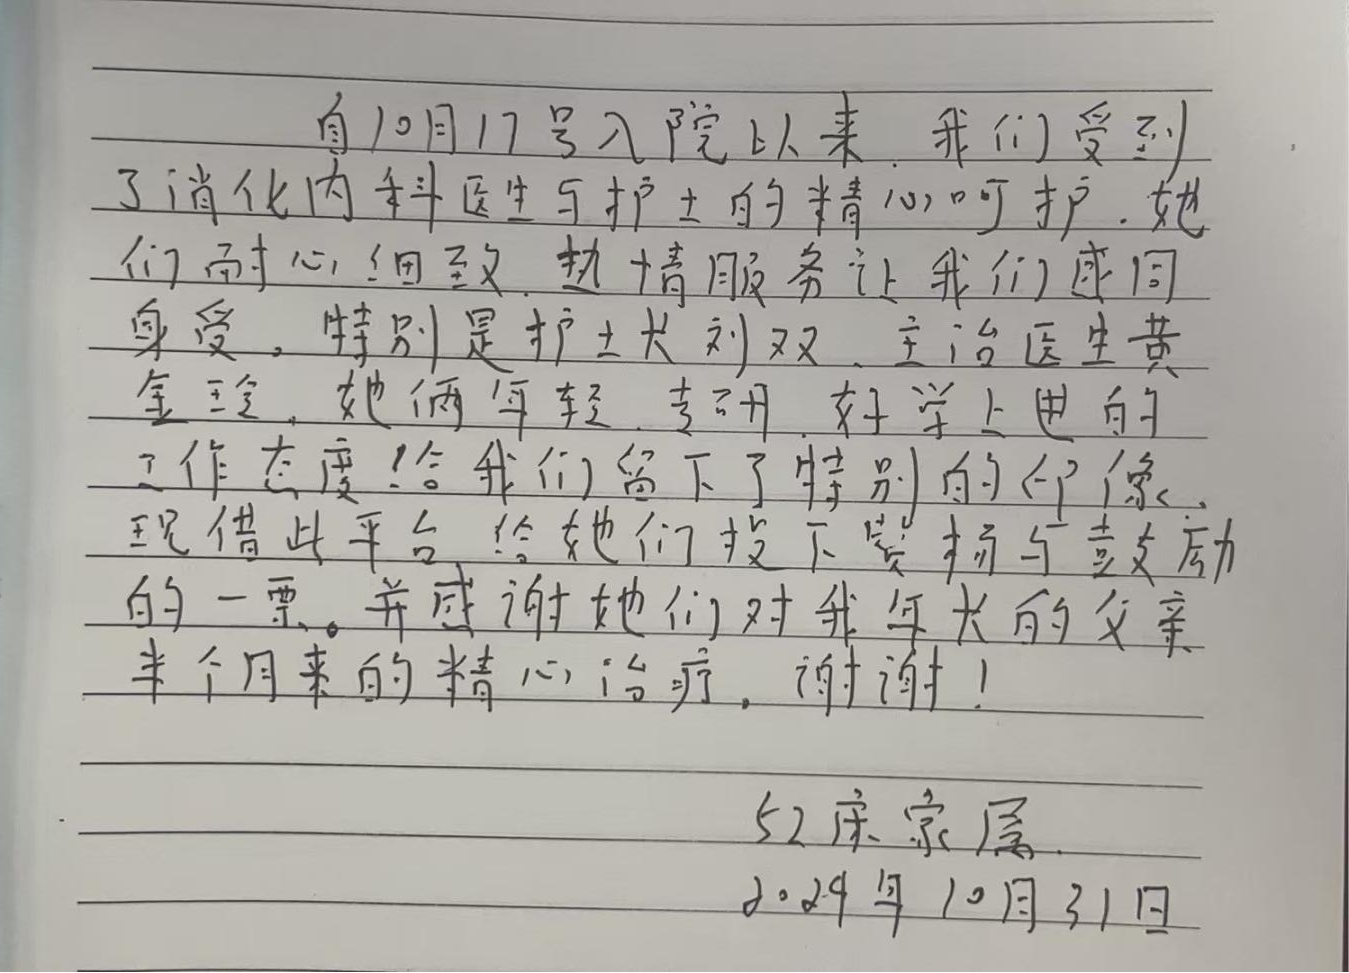 自10月17号入院以来.我们受到
了消化内科医生与护士的精心呵护.她
们耐心细致.热情服务让我们感同
身受。特别是护士长刘双、主治医生黄
金珍.她俩年轻.专研.好学上进的
工作态度给我们留下了特别的印像.
现借此平台给她们投下赞扬与鼓励
的一票。并感谢她们对我年长的父亲
半个月来的精心治疗.谢谢!
52床家属.
2024年10月31日